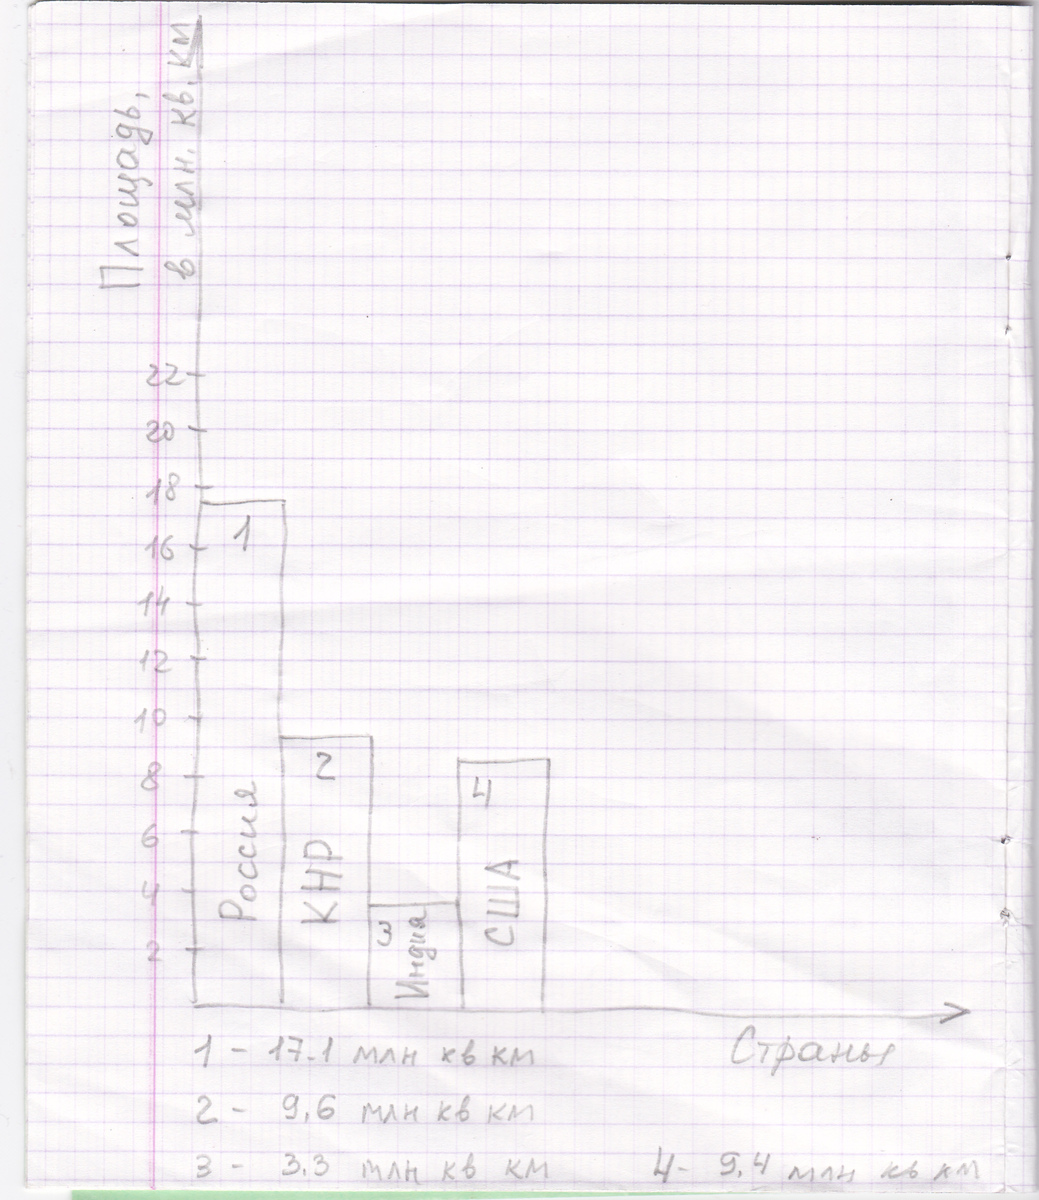 Площадь,
в млн. кв. км
22
20
18
16
14
12
10
8
6
4
2
1
Россия
2
КНР
3
Индия
4
США
Страны
1 - 17.1 млн кв км
2 - 9,6 млн кв км
3 - 3.3 млн кв км
4 - 9,4 млн кв км